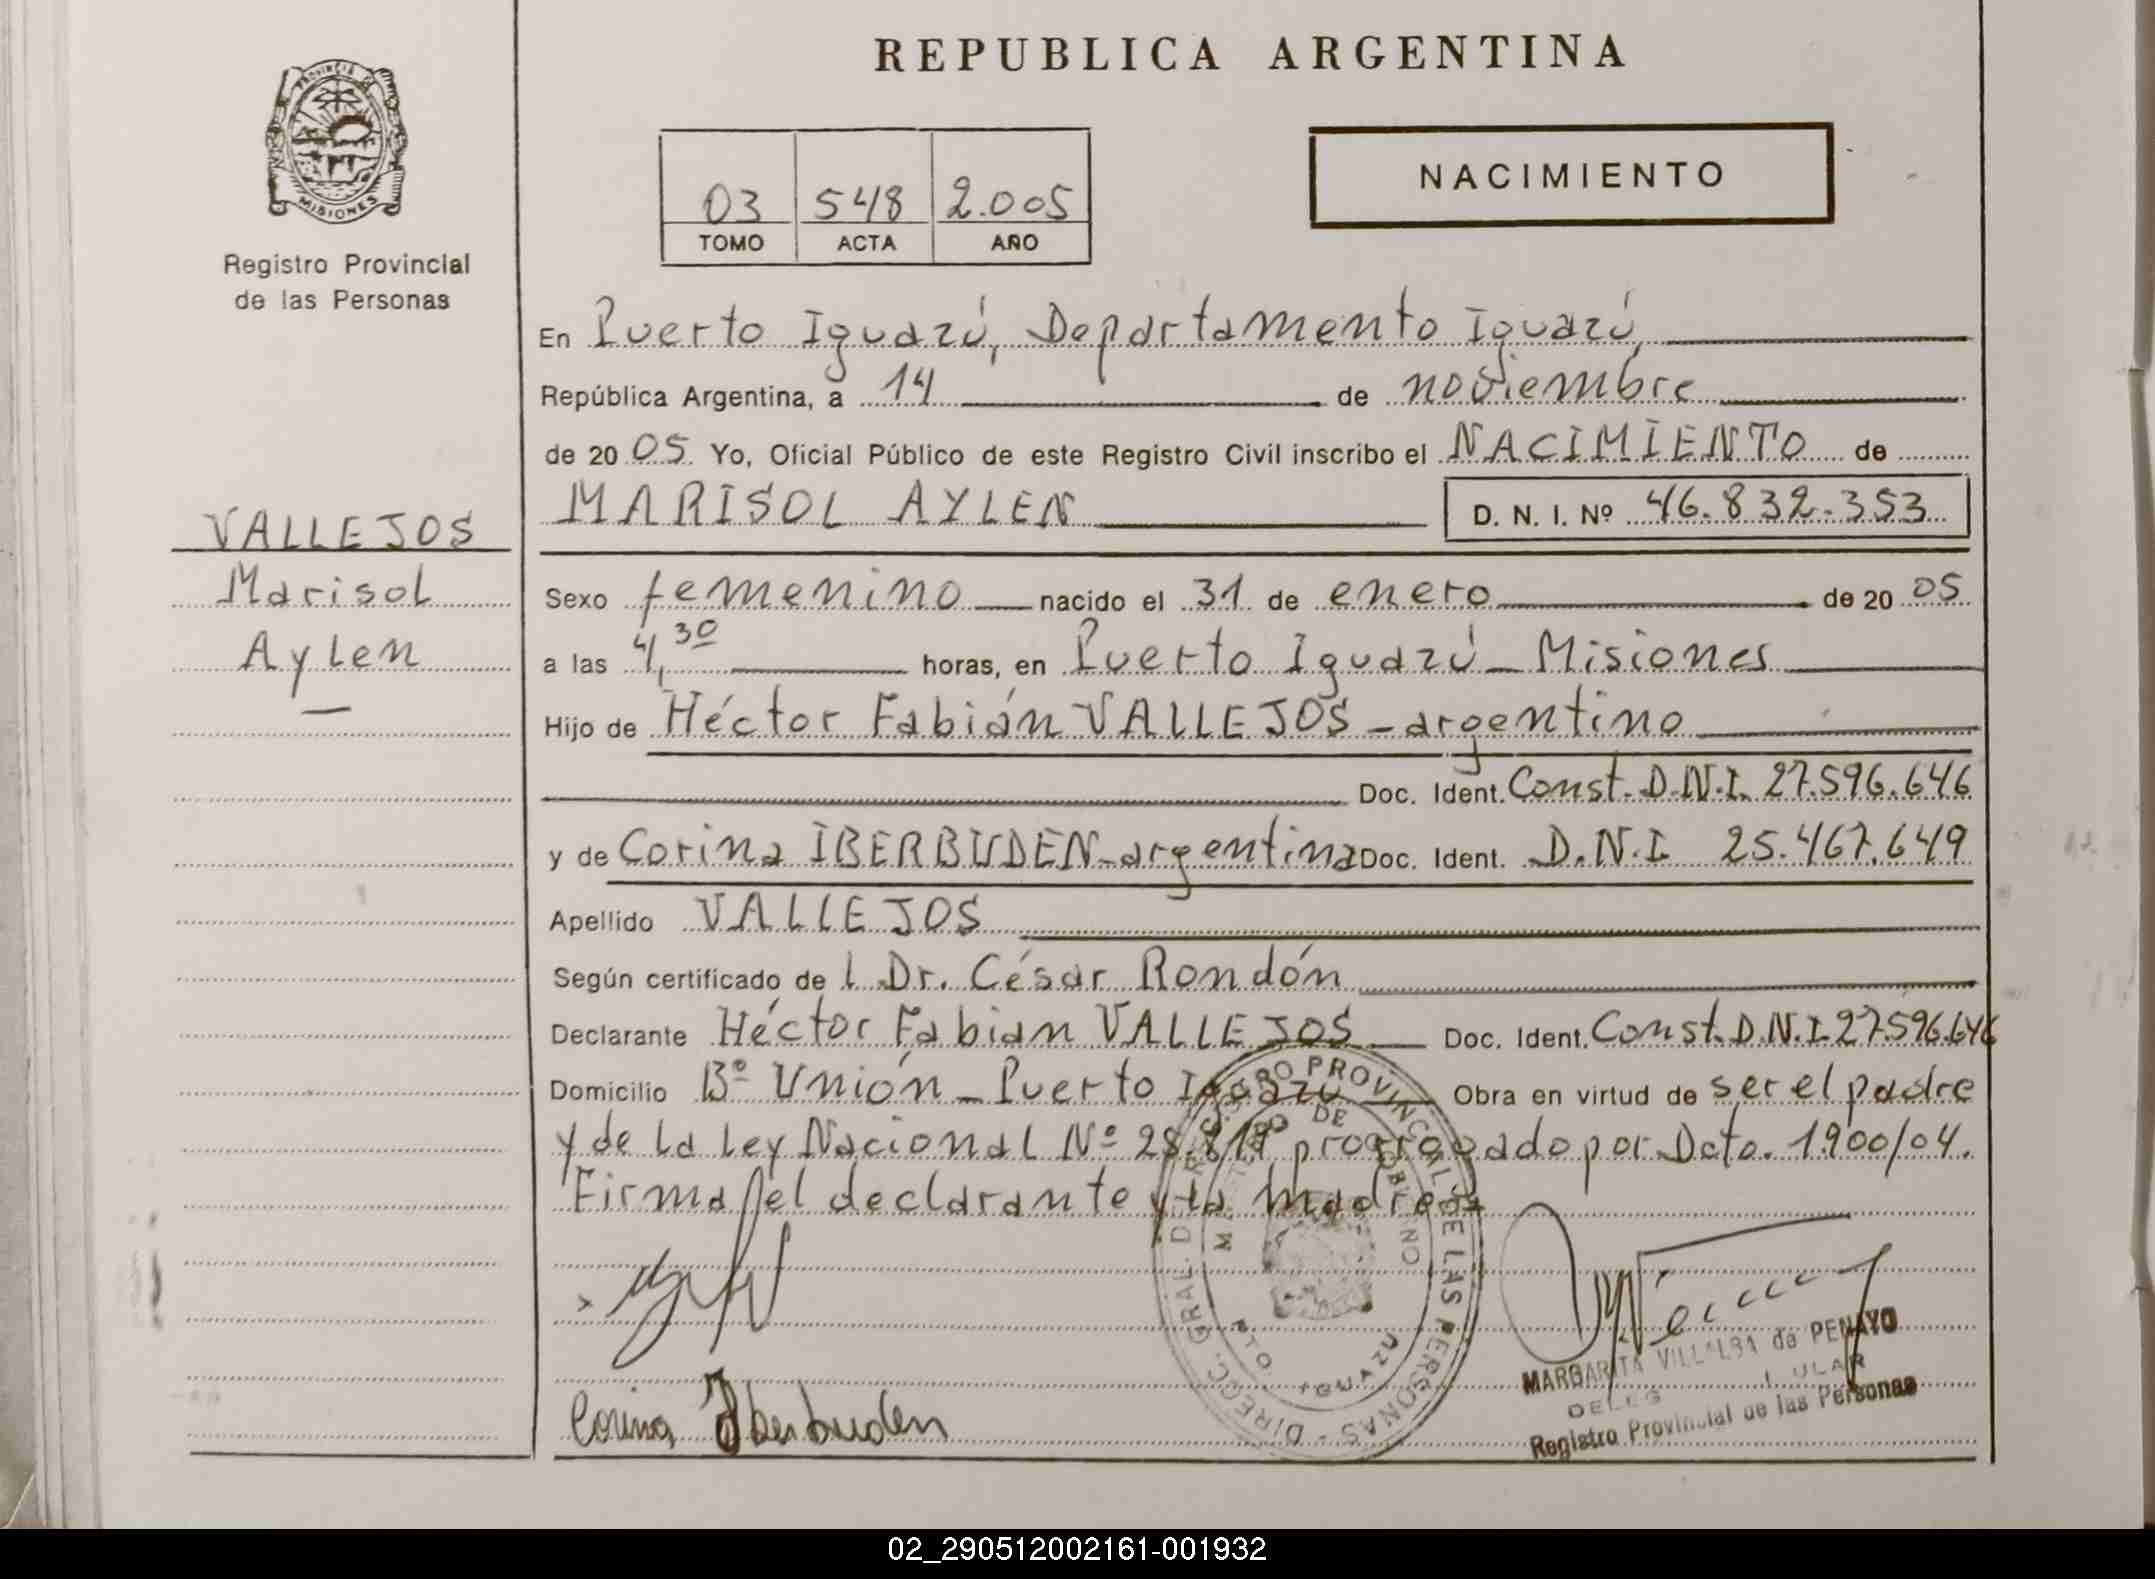 REPUBLICA ARGENTINA
PROVINCIA DE
MISIONES
Registro Provincial
de las Personas
03 548 2.005
TOMO ACTA AÑO
NACIMIENTO
En Puerto Iguazú, Departamento Iguazú,
República Argentina, a 14 de noviembre
de 2005 Yo, Oficial Público de este Registro Civil inscribo el NACIMIENTO de
MARISOL AYLEN D. N. I. Nº 46.832.353
VALLEJOS
Marisol
Aylen
Sexo femenino nacido el 31 de enero de 2005
a las 4,30 horas, en Puerto Iguazú - Misiones
Hijo de Héctor Fabián VALLEJOS - argentino
Doc. Ident. Const. D.N.I. 27.596.646
y de Corina IBERBUDEN - argentina Doc. Ident. D.N.I. 25.467.649
Apellido VALLEJOS
Según certificado del Dr. César Rondón
Declarante Héctor Fabian VALLEJOS Doc. Ident. Const. D.N.I. 27.596.646
Domicilio Bº Unión - Puerto Iguazú Obra en virtud de ser el padre
y de la Ley Nacional Nº prorrogado por Dcto. 1.900/04.
Firma el declarante y la madre
DIRECC. GRAL. DEL REGISTRO PROVINCIAL DE LAS PERSONAS -
MINISTERIO DE GOBIERNO
PTO. IGUAZU
Corina Iberbuden
MARGARITA VILLALBA de PENAYO
Registro Provincial de las Personas
02_290512002161-001932